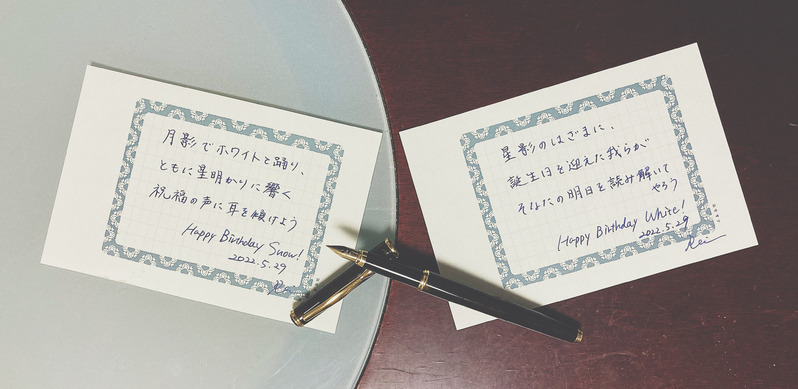 月影でホワイトと踊り、
ともに星明かりに響く
祝福の声に耳を傾けよう
Happy Birthday Snow!
2022.5.29
Rei
星影のはざまに、
誕生日を迎えた我らが
そなたの明日を読み解いて
やろう
Happy Birthday White!
2022.5.29
Rei